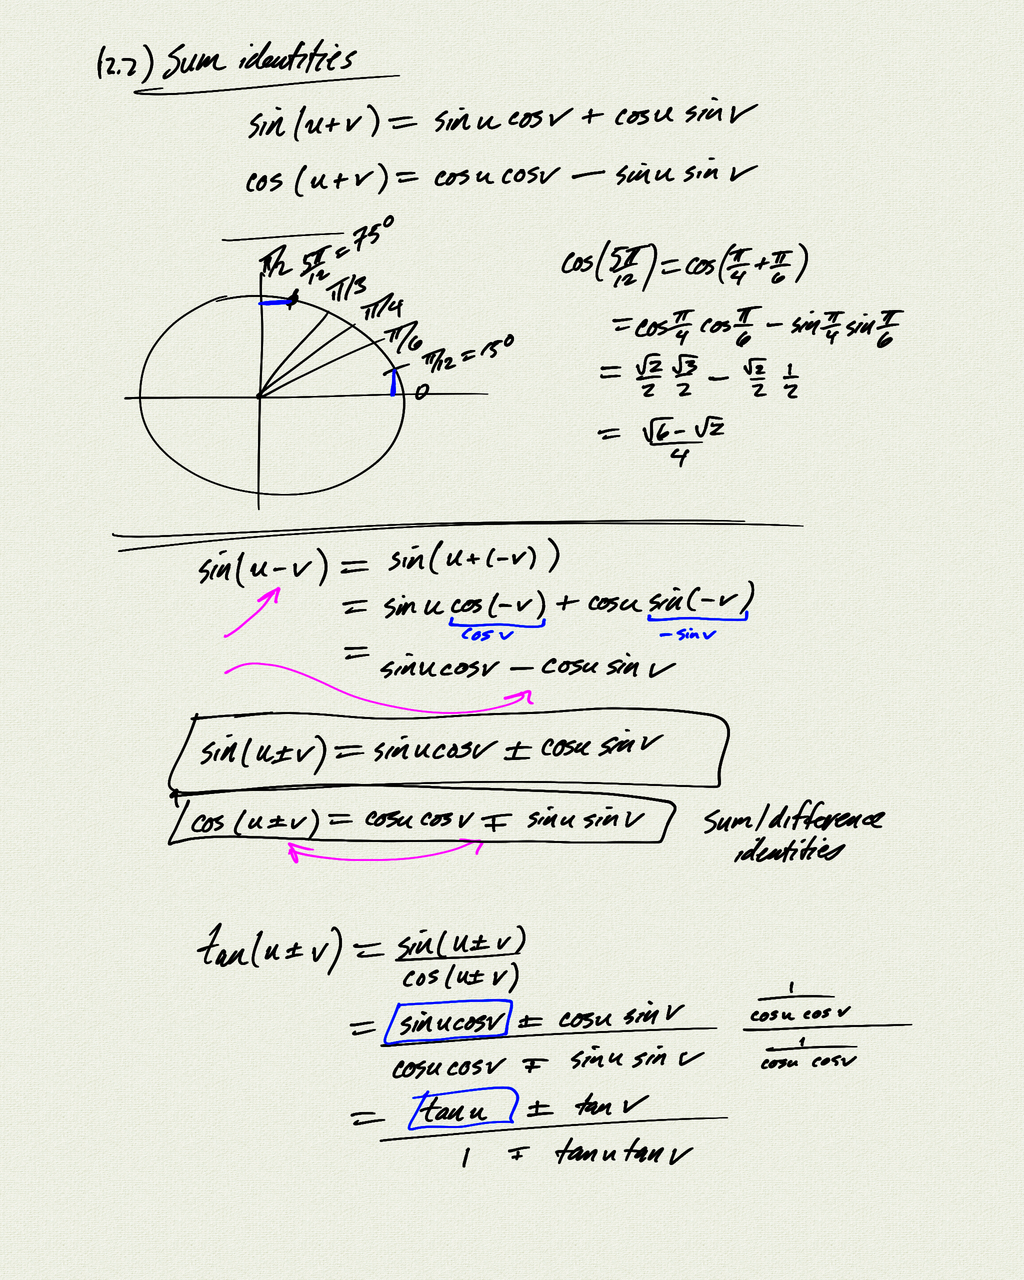 (2.2) Sum identities
sin(u+v) = sinu cosv + cosu sinv
cos(u+v) = cosu cosv − sinu sinv
π/2 5π/12 = 75°
π/3
π/4
π/6
π/12 = 15°
0
cos(5π/12) = cos(π/4 + π/6)
= cos π/4 cos π/6 − sin π/4 sin π/6
= √2/2 √3/2 − √2/2 1/2
= (√6 − √2)/4
sin(u−v) = sin(u+(−v))
= sinu cos(−v) + cosu sin(−v)
cosv −sinv
= sinu cosv − cosu sinv
sin(u±v) = sinu cosv ± cosu sinv
cos(u±v) = cosu cosv ∓ sinu sinv
Sum/difference
identities
tan(u±v) = sin(u±v)
cos(u±v)
= sinu cosv ± cosu sinv 1/(cosu cosv)
cosu cosv ∓ sinu sinv 1/(cosu cosv)
= tanu ± tanv
1 ∓ tanu tanv